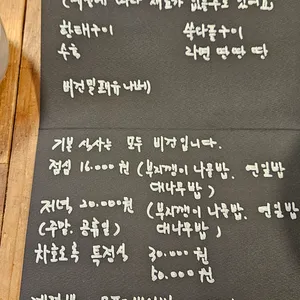 황태구이
쑥더풀구이
수육
라면 땅땅땅
비건밀페유나베
기본 식사는 모두 비건입니다.
점심 16.000원 (부지깽이 나물밥. 연잎밥
대나무밥)
저녁 20.000원 (부지깽이 나물밥. 연잎밥
(주말. 공휴일) 대나무밥)
차호로록 특정식 30.000원
50.000원